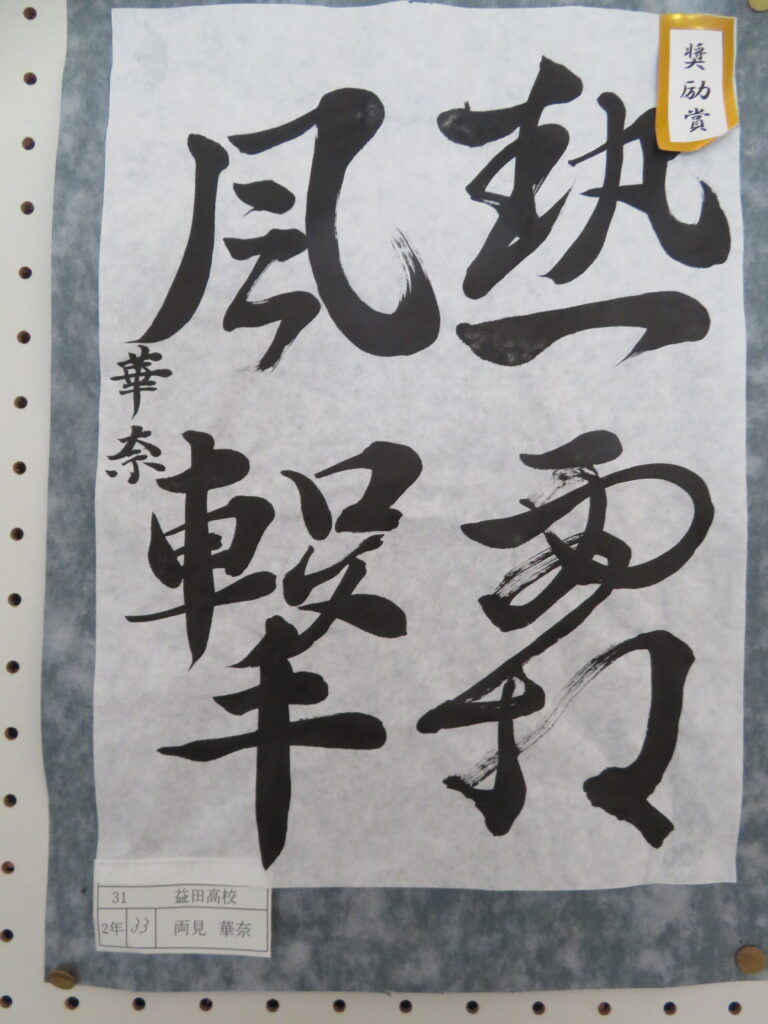 奨励賞
熱霜
風撃
華奈
31 益田高校
2年 33 両見 華奈